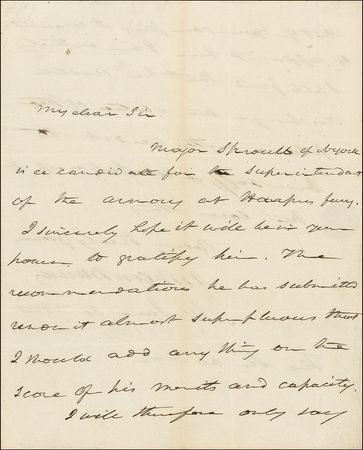 My dear Sir
Major Sproull of N.york
is a candidate for the Superintendent
of the armory at Harpers ferry.
I sincerely hope it will be in your
power to gratify him. The
recommendations he has submitted
render it almost superfluous that
I should add any thing on the
score of his merits and capacity.
I will therefore only say